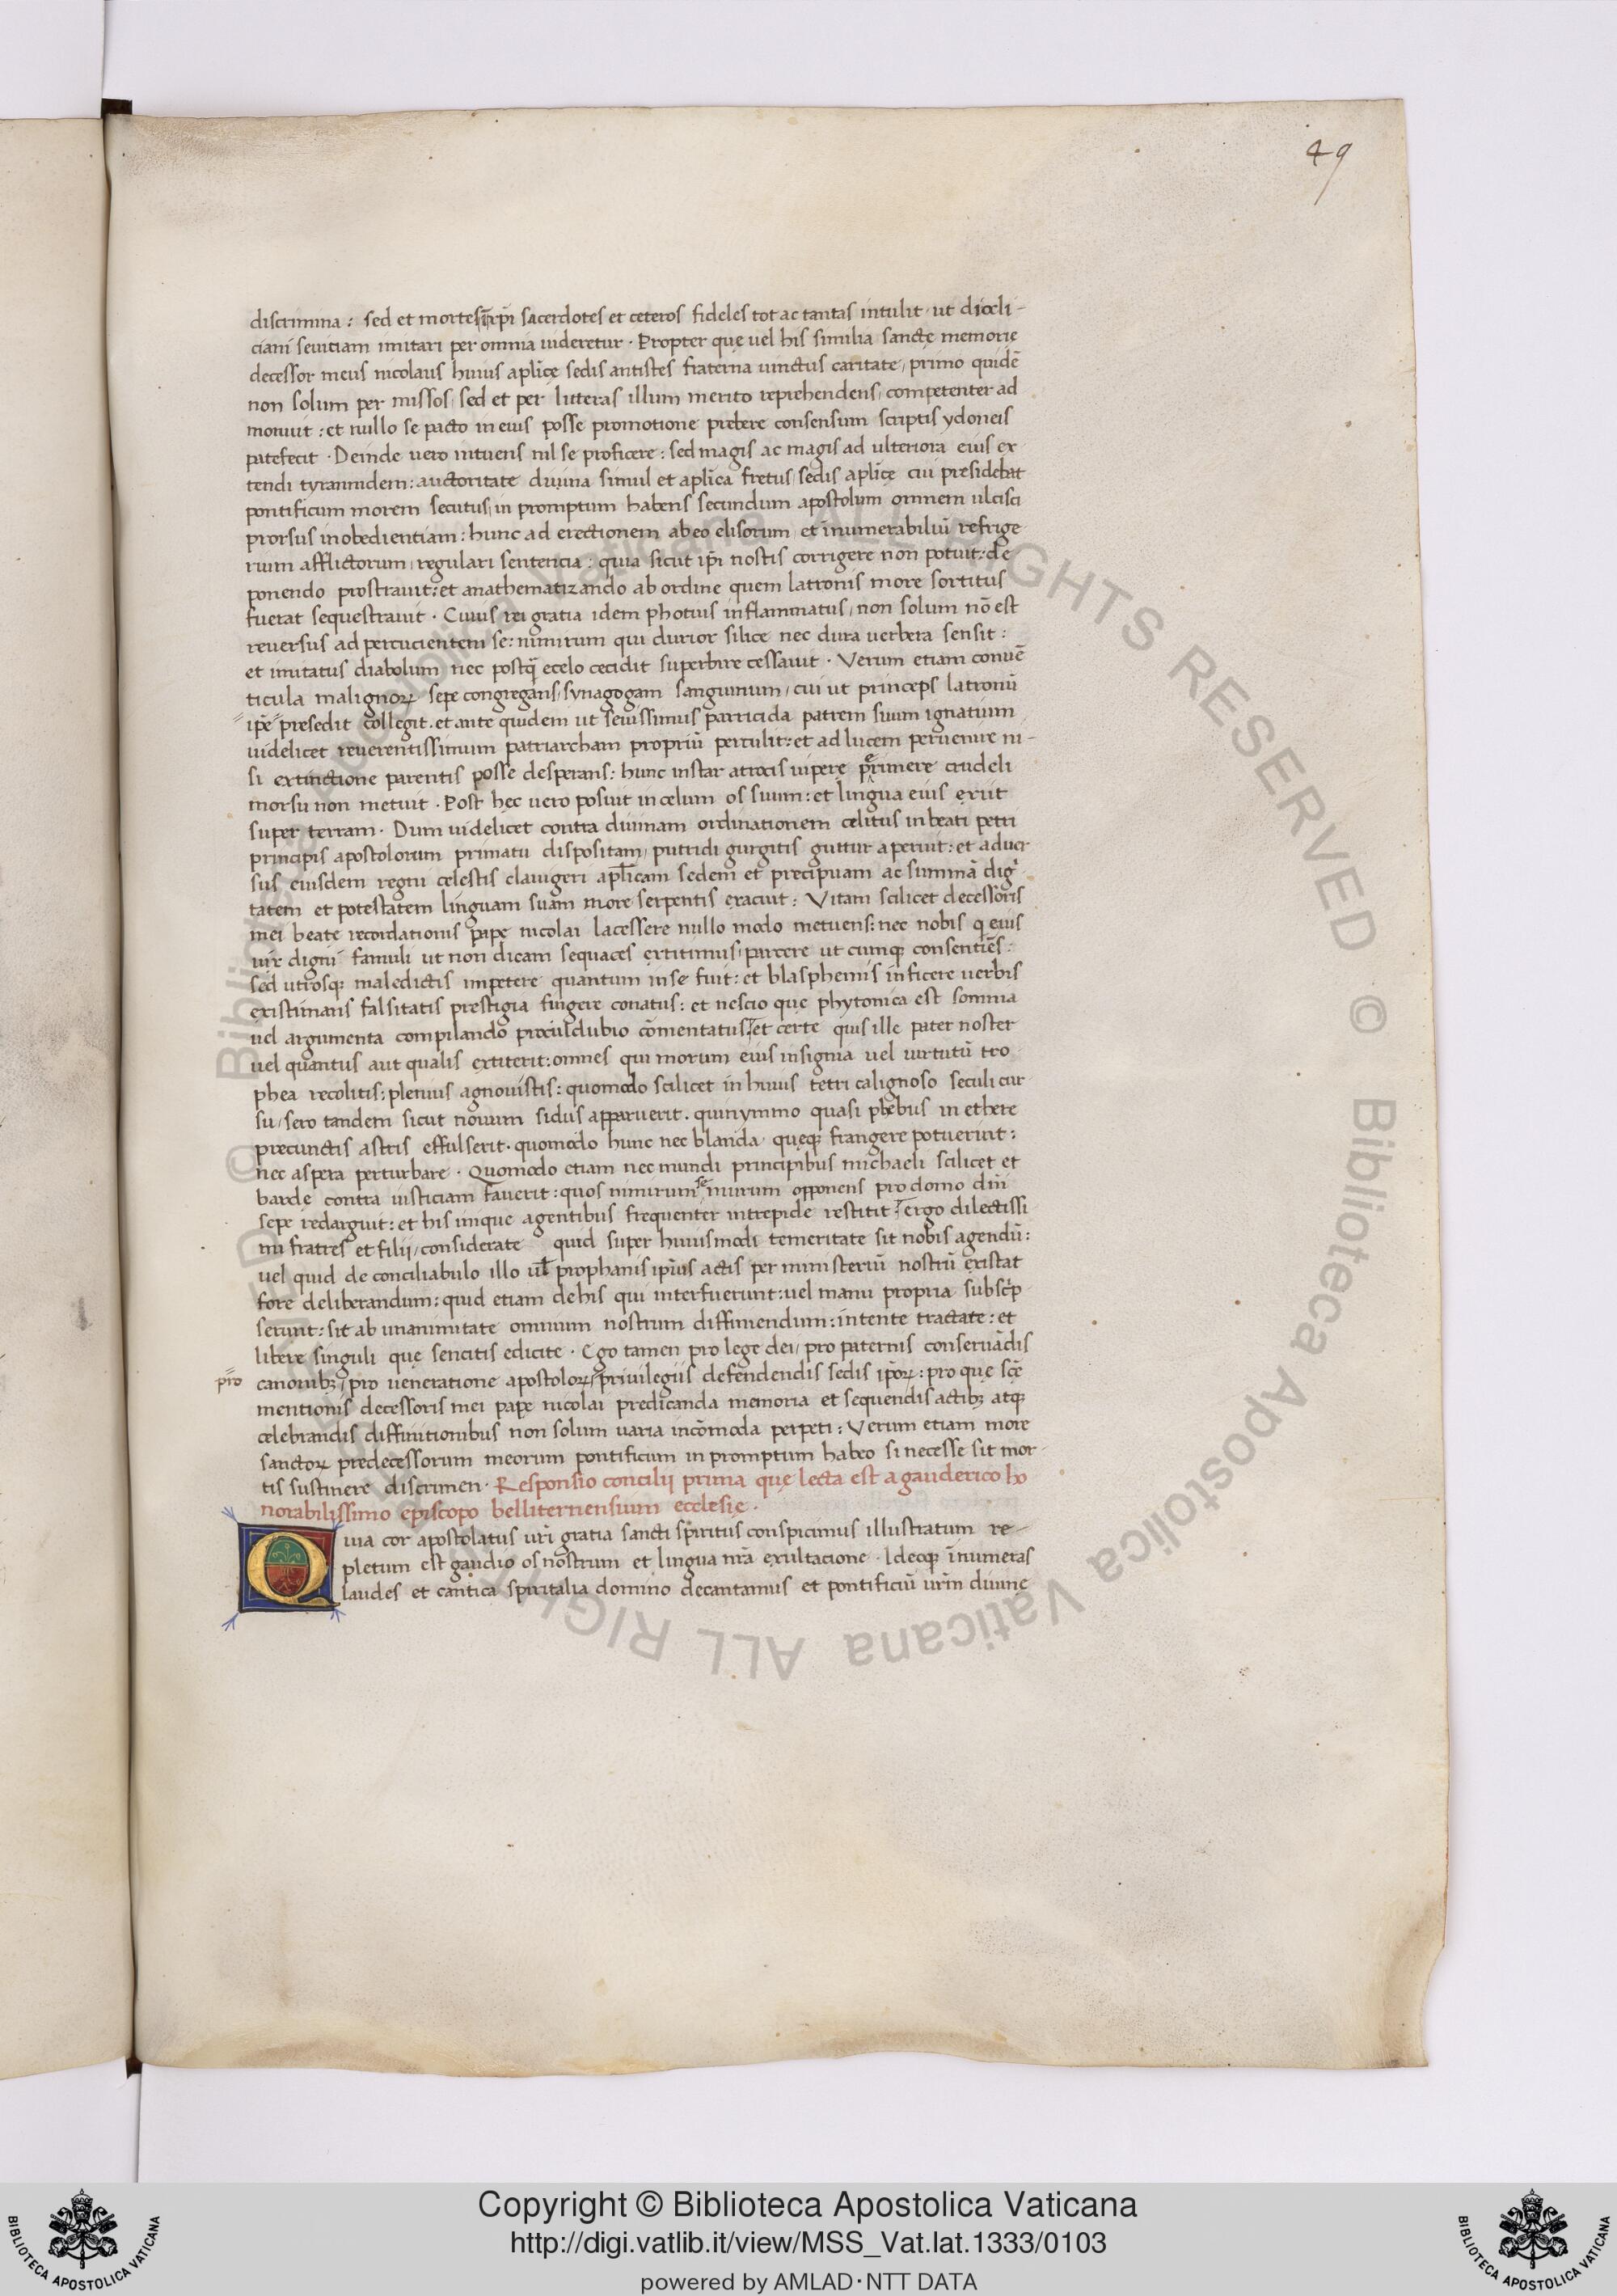 49
discrimina : sed et mortes in xp̄i sacerdotes et ceteros fideles tot ac tantas intulit · ut diocli-
ciani seuitiam imitari per omnia uideretur · Propter quę uel his similia sanctę memorię
decessor meus nicolaus huius aplicę sedis antistes fraterna uinctus caritate, primo quidē
non solum per missos, sed et per litteras illum merito reprehendens, competenter ad
monuit : et nullo se pacto in eius posse promotione prebere consensum scriptis ydoneis
patefecit · Deinde uero intuens nil se proficere : sed magis ac magis ad ulteriora eius ex
tendi tyrannidem : auctoritate diuina simul et aplica fretus, sedis aplicę cui presidebat
pontificum morem secutus, in promptum habens secundum apostolum omnem ulcisci
prorsus inobedientiam : hunc ad erectionem ab eo elisorum, et īnumerabiliū refrige
rium afflictorum, regulari sentencia : quia sicut ip̄i nostis corrigere non potuit : de
ponendo prostrauit : et anathematizando ab ordine quem latronis more sortitus
fuerat sequestrauit · Cuius rei gratia idem photius inflammatus, non solum nō est
reuersus ad percucientem se : nimirum qui durior silice nec dura uerbera sensit :
et imitatus diabolum nec postq̄ e celo cecidit superbire cessauit · Verum etiam conuē
ticula malignoꝝ sepe congregans, synagogam sanguinum, cui ut princeps latronū
ip̄e presedit collegit · et ante quidem ut seuissimus parricida patrem suum ignatium
uidelicet reuerentissimum patriarcham propriū perculit : et ad lucem peruenire ni-
si extinctione parentis posse desperans : hunc instar atrocis uiperę perimere crudeli
morsu non metuit · Post hęc uero posuit in celum os suum : et lingua eius exiit
super terram · Dum uidelicet contra diuinam ordinationem celitus in beati petri
principis apostolorum primatu dispositam, putridi gurgitis guttur aperuit : et aduer
sus eiusdem regni celestis clauigeri aplicam sedem et precipuam ac summā dig
tatem et potestatem linguam suam more serpentis exacuit : Vitam scilicet decessoris
mei beate recordationis papę nicolai lacessere nullo modo metuens : nec nobis q eius
uix digni famuli ut non dicam sequaces extitimus, parcere ut cunq consentiēs :
sed utrosq maledictis impetere quantum in se fuit : et blasphemis inficere uerbis
existimans falsitatis prestigia fingere conatus : et nescio que phytonica est somnia
uel argumenta compilando proculdubio cōmentatus : et certe quis ille pater noster
uel quantus aut qualis extiterit : omnes qui morum eius insignia uel uirtutū tro
phea recolitis : plenius agnouistis : quomodo scilicet in huius tetri calignoso seculi cur
su, sero tandem sicut nouum sidus apparuerit · quinymmo quasi phebus in ethere
precunctis astris effulserit · quomodo hunc nec blanda queq frangere potuerint :
nec aspera perturbare · Quomodo etiam nec mundi principibus michaeli scilicet et
barde contra iusticiam fauerit : quos nimirum se murum opponens pro domo dn̄i
sepe redarguit : et his inique agentibus frequenter intrepide restitit : ergo dilectissi
mi fratres et filii, considerate quid super huiusmodi temeritate sit nobis agendū :
uel quid de conciliabulo illo ul prophanis ipīus actis per ministeriū nostrū existat
fore deliberandum : quid etiam de his qui interfuerunt : uel manu propria subscp
serunt : sit ab unanimitate omnium nostrum diffiniendum : intente tractate : et
libere singuli quę sencitis edicite · Ego tamen pro lege dei, pro paternis conseruādis
pro
canonibꝫ, pro ueneratione apostoloꝝ, priuilegiis defendendis sedis ip̄oꝝ : pro quę sc̄ę
mentionis decessoris mei papę nicolai predicanda memoria et sequendis actibꝫ atq
celebrandis diffinitionibus non solum uaria incōmoda perpeti : Verum etiam more
sanctoꝝ predecessorum meorum pontificum in promptum habeo si necesse sit mor
tis sustinere discrimen · Responsio concilij prima quę lecta est a gauderico ho
norabilissimo episcopo belliternensium ecclesię ·
Quia cor apostolatus ur̄i gratia sancti spiritus conspicimus illustratum re-
pletum est gaudio os nostrum et lingua nr̄a exultacione · Ideoq īnumeras
laudes et cantica spiritalia domino decantamus et pontificiū ur̄m diuinę
Copyright © Biblioteca Apostolica Vaticana
http://digi.vatlib.it/view/MSS_Vat.lat.1333/0103
powered by AMLAD·NTT DATA
BIBLIOTECA APOSTOLICA VATICANA
BIBLIOTECA APOSTOLICA VATICANA
© Biblioteca Apostolica Vaticana ALL RIGHTS RESERVED © Biblioteca Apostolica Vaticana ALL RIGHTS RESERVED